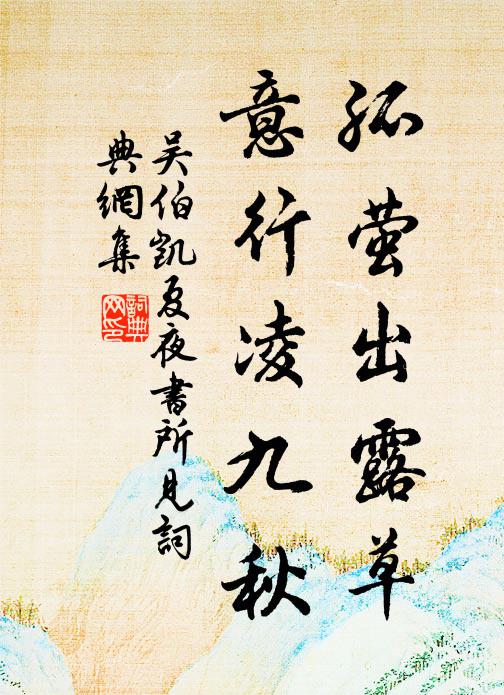 孤萤出露草
意行凌九秋
吴伯凯夏夜書所見詞
典網集
詞典
网印